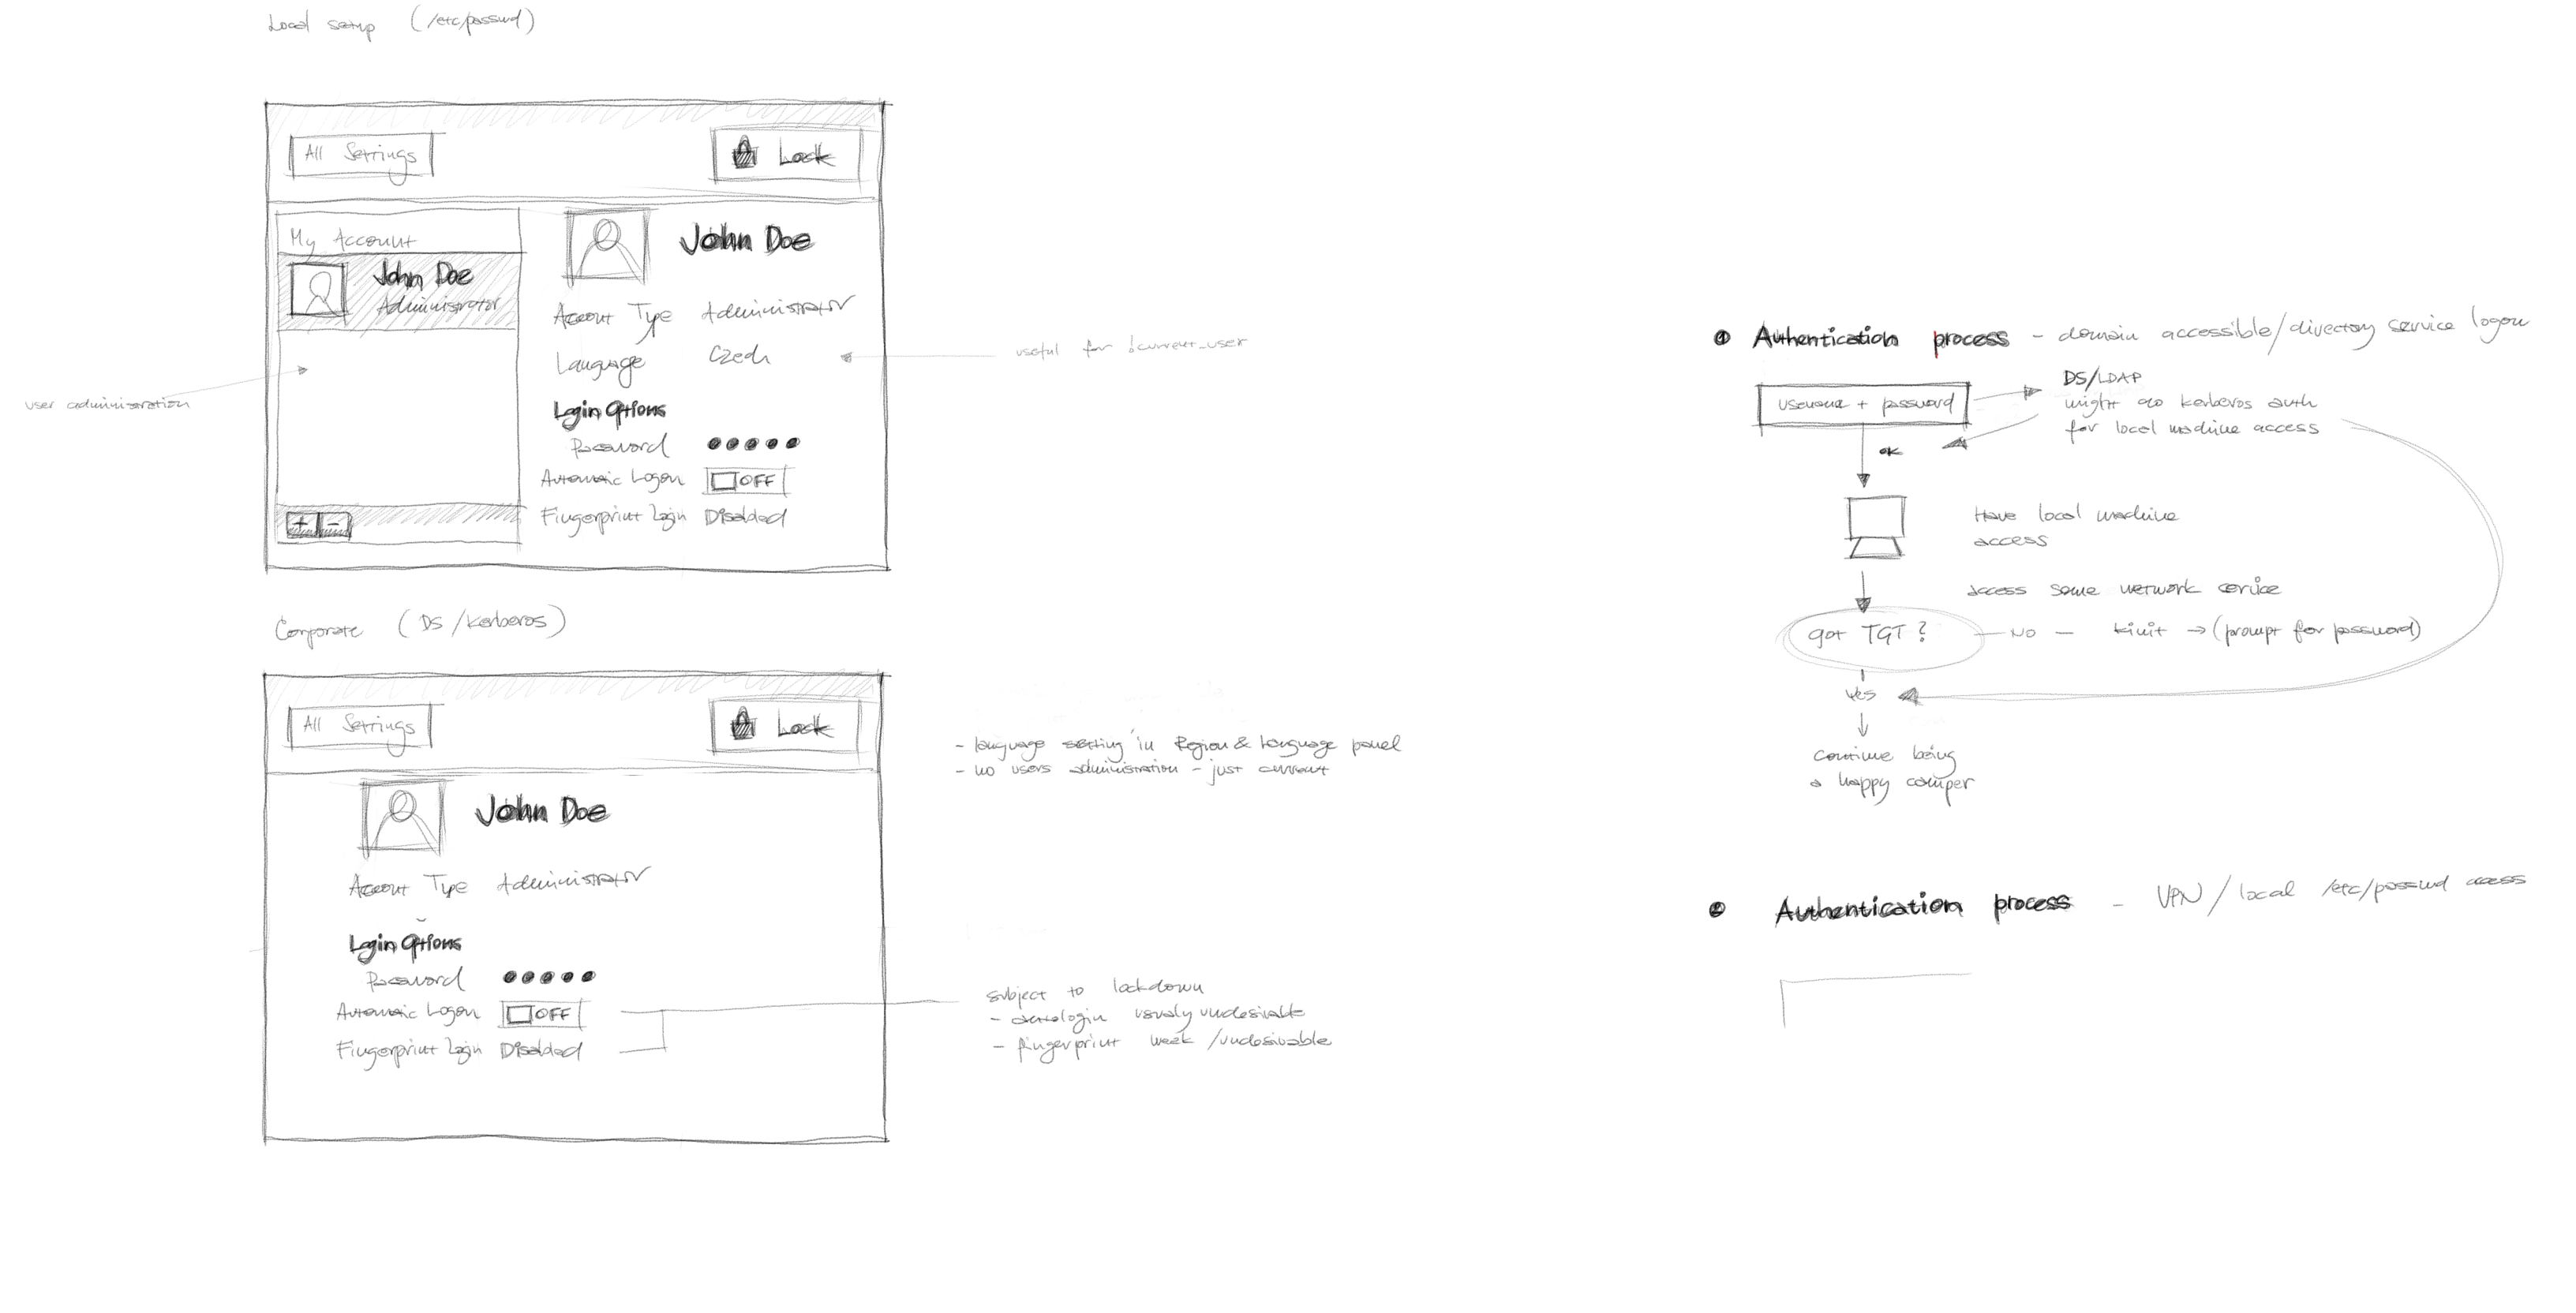 Local setup (/etc/passwd)
All Settings
Lock
My Account
John Doe
Administrator
John Doe
Account Type Administrator
Language Czech
Login Options
Password ●●●●●
Automatic Logon OFF
Fingerprint Login Disabled
+ -
user administration
useful for !current_user
Corporate (DS/Kerberos)
All Settings
Lock
John Doe
Account Type Administrator
Login Options
Password ●●●●●
Automatic Logon OFF
Fingerprint Login Disabled
- language setting in Region & Language panel
- no users administration - just current
subject to lockdown
- autologin usualy undesirable
- fingerprint weak /undesirable
1 Authentication process - domain accessible/directory service logon
username + password
DS/LDAP
might do kerberos auth
for local machine access
OK
Have local machine
access
access some network service
got TGT?
- NO - kinit → (prompt for password)
yes
Continue being
a happy camper
2 Authentication process - VPN / local /etc/passwd access